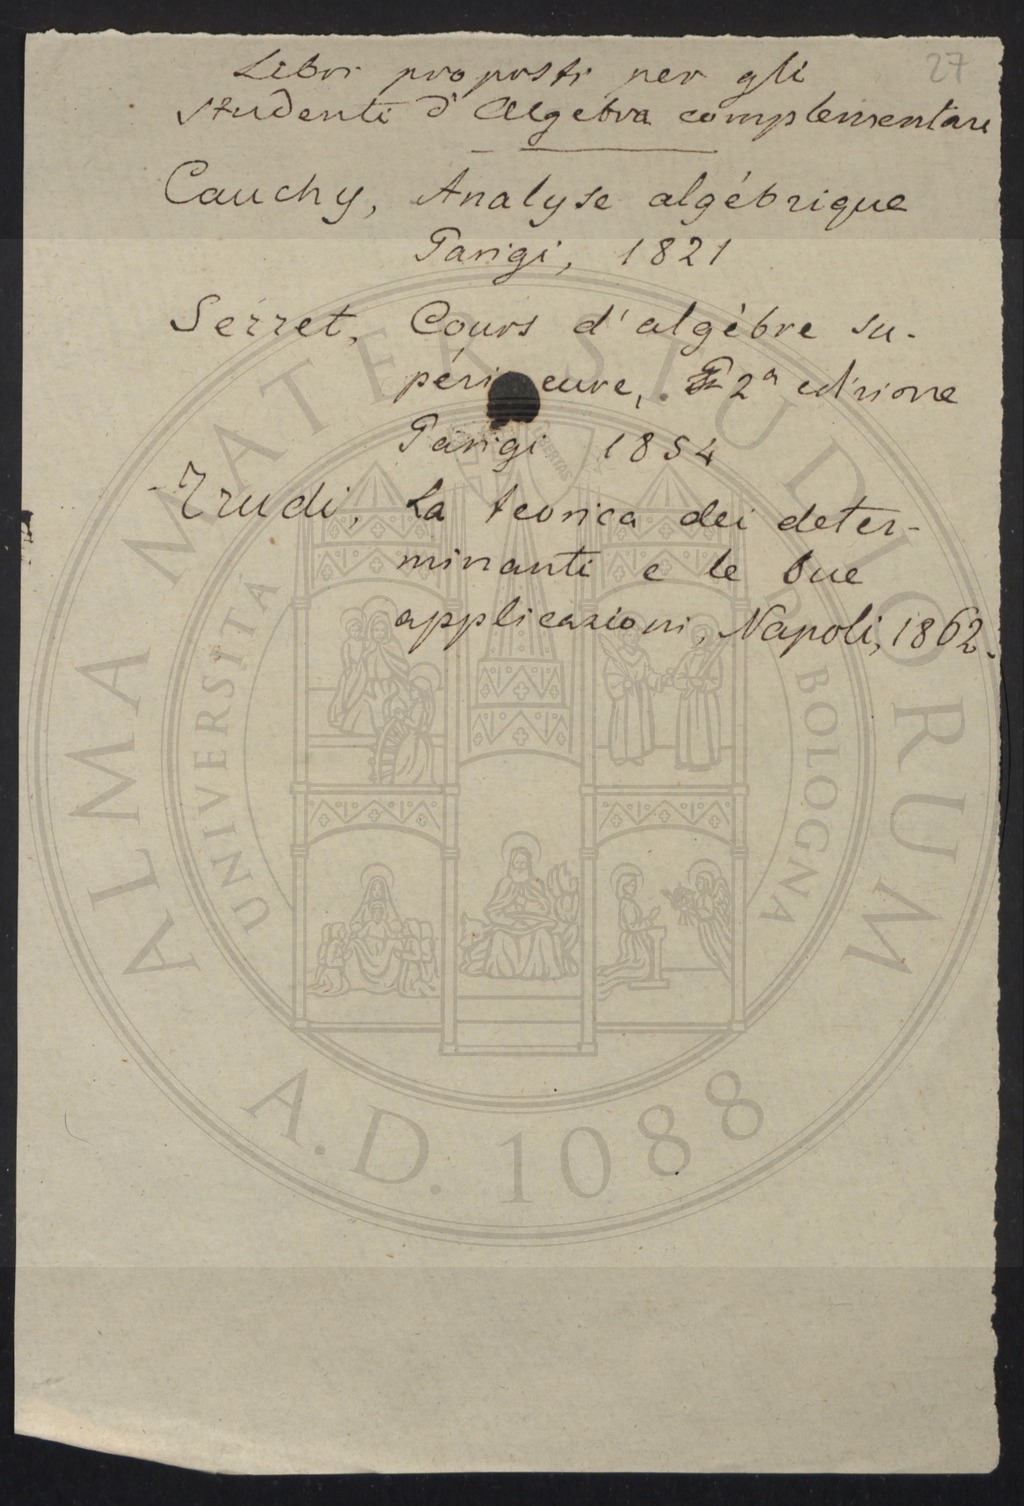 27
Libri proposti per gli
studenti d'Algebra complementare
Cauchy, Analyse algébrique
Parigi, 1821
Serret, Cours d'algèbre su-
périeure, 2a edizione
Parigi 1854
Trudi, La teorica dei deter-
minanti e le sue
applicazioni, Napoli, 1862.
ALMA MATER STUDIORUM
UNIVERSITÀ DI BOLOGNA
A.D. 1088